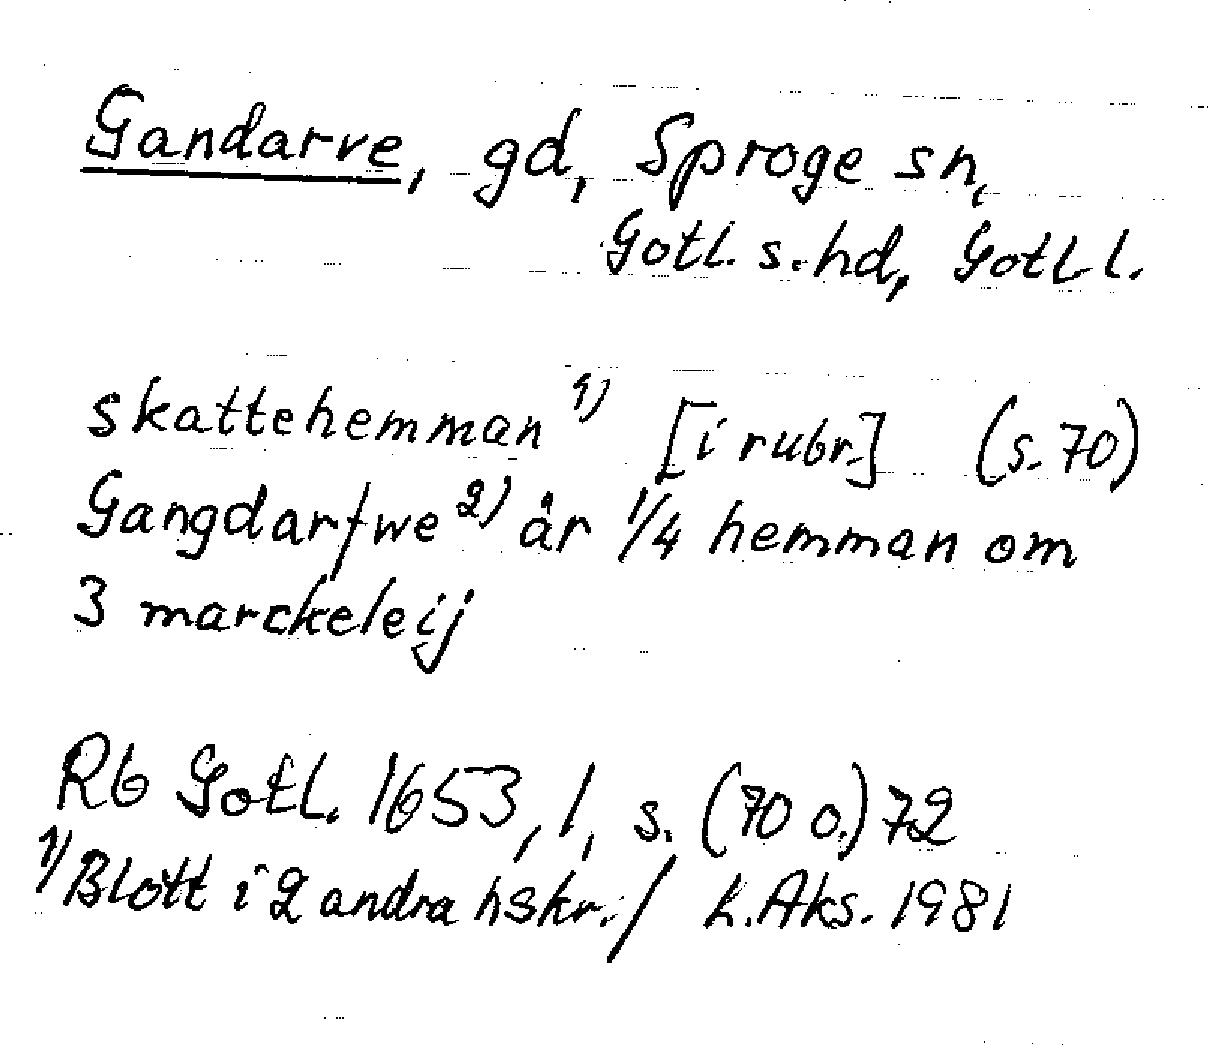 Gandarve, gd, Sproge sn,
Gotl. s. hd, Gotl l.
skattehemman 1) [i rubr.] (s. 70)
Gangdarfwe 2) är 1/4 hemman om
3 marckeleij
Rb Gotl. 1653, 1, s. (70 o.) 72
1) Blott i 2 andra hskr. / L. Aks. 1981